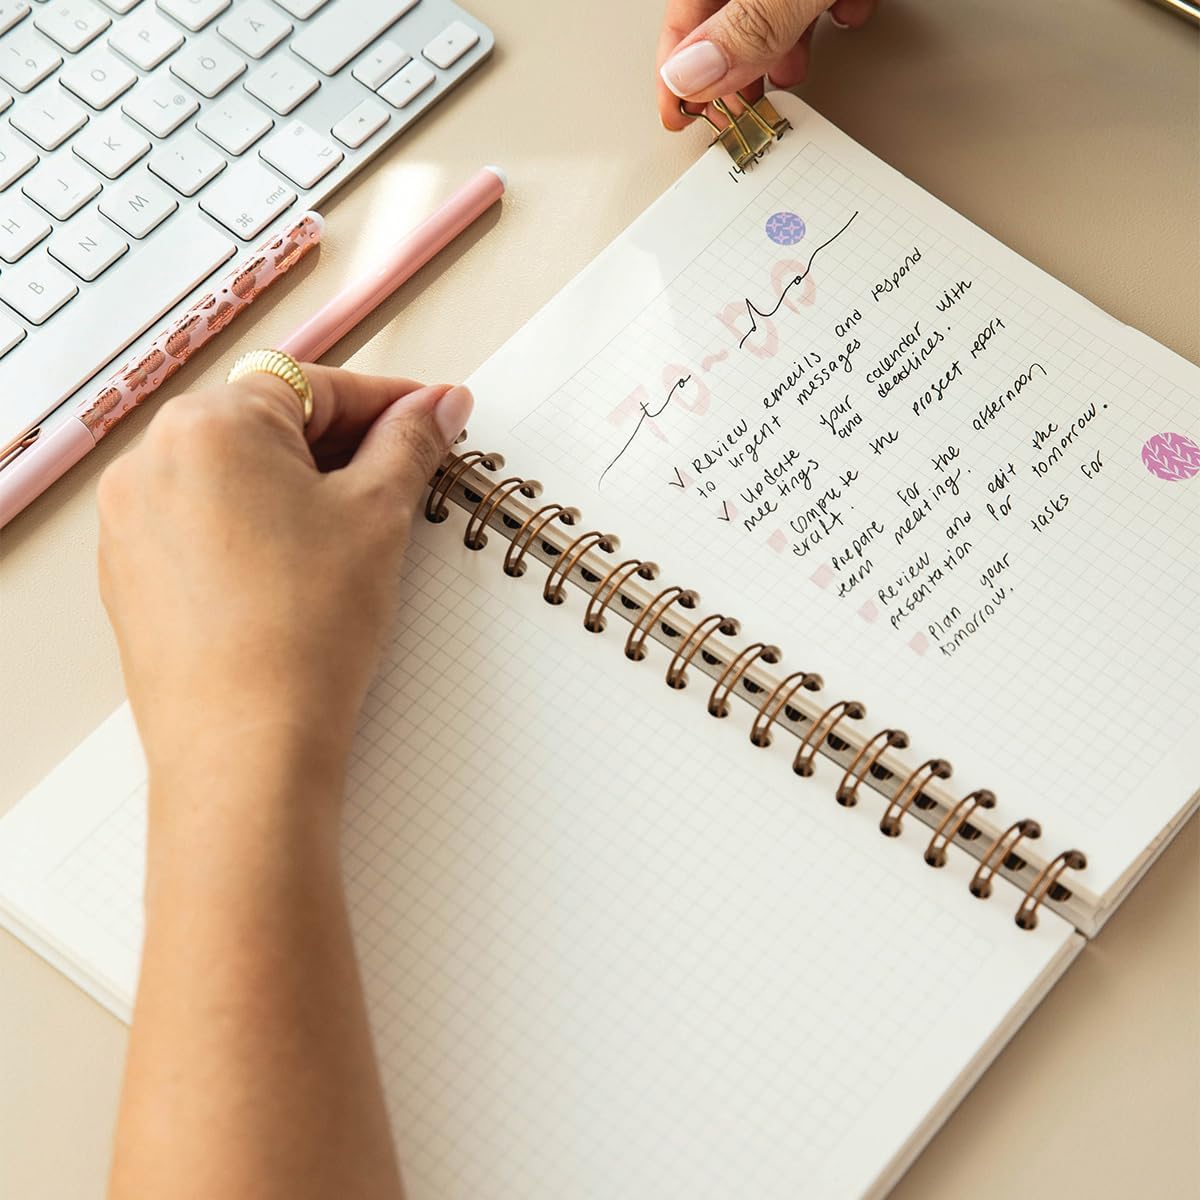 to-do
TO-DO
✓ Review emails and respond
to urgent messages
✓ Update your calendar with
meetings and deadlines.
Compute the proscet report
draft.
Prepare for the afternoon
team meating.
Review and edit the
presentation for tomorrow.
Plan your tasks for
tomorrow.
P
Ä
O
Ö
I
L
@
K
J
M
H
N
B
cmd
⌘
9